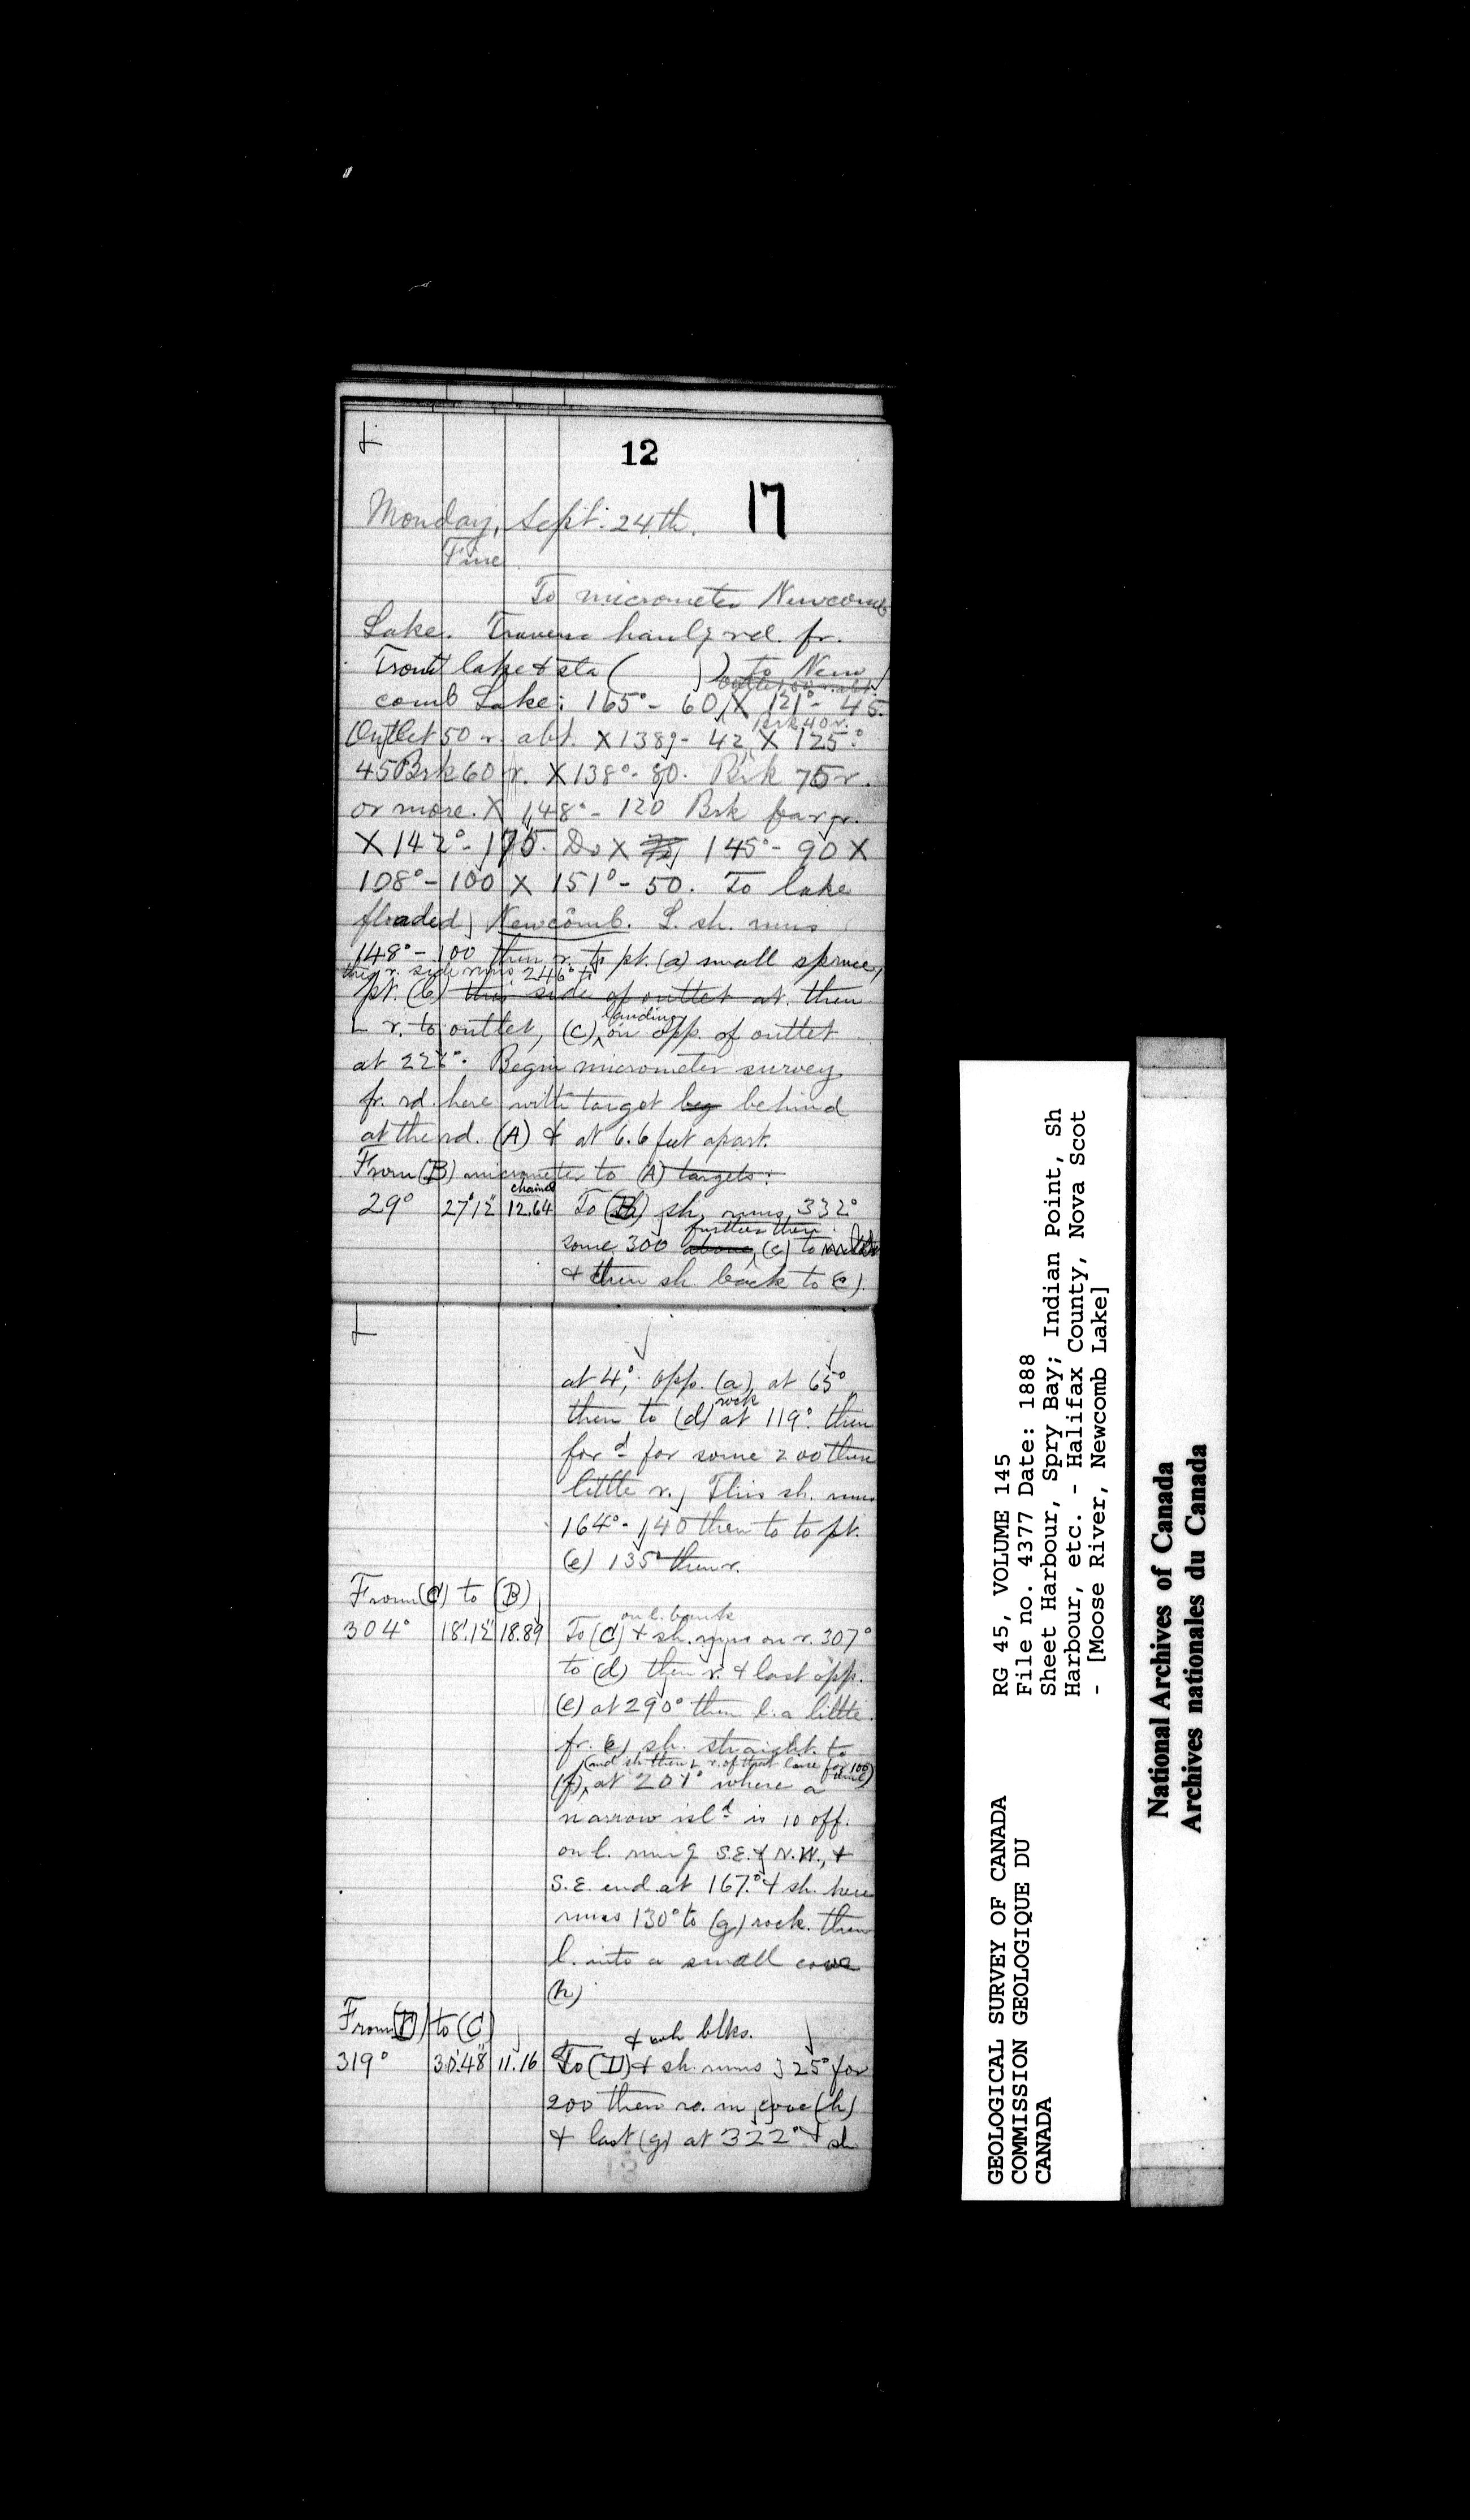 12
17
Monday, Sept. 24th.
Fine
To micrometer Newcomb
Lake. Traverse haulg rd. fr.
Trout lake & sta ( ) to New
comb Lake: 165° - 60 X 121° - 45.
Brk 40 r.
Outlet 50 r. abt. X 138° - 42, X 125°
45 Brk 60 r. X 138° - 80. Brk 75 r.
or more. X 148° - 120 Brk far r.
X 142° - 175. Do X 145° - 90 X
108° - 100 X 151° - 50. To lake
floaded, Newcomb. L. sh. runs
148° - 100 then r. to pt. (a) small spruce,
this r. side runs 246° to
pt. (b) this side of outlet at. then
r. to outlet, (c) on opp. of outlet
landing
at 222°. Begin micrometer survey
fr. rd. here with target beg behind
at the rd. (A) & at 6.6 feet apart.
From (B) micrometer to (A) targets:
chains
29° 27'12" 12.64 To (B) sh. runs 332°
further then
some 300 above, (c) to
& then sh back to (c).
at 4°, opp. (a) at 65°
rock
then to (d) at 119° then
for'd for some 200 then
little r., This sh. runs
164° - 140 then to to pt.
(e) 135° then r.
From (C) to (B)
on l. bank
304° 18'.12" 18.89 To (C) & sh. runs on r. 307°
to (d) then r. & last opp.
(e) at 290° then l. a little.
fr. (e) sh. straight to
(and sh. then r. of that line for 100
(f), at 201° where a
narrow isl'd is 10 off.
on l. rung S.E. & N.W., &
S.E. end at 167.° & sh. here
runs 130° to (g) rock. then
l. into a small cove
(h)
From (D) to (C)
& wh blks.
319° 30'.48" 11.16 To (D) & sh. runs 325° for
200 then ro. in cove (h)
& last (g) at 322° & sh
13
GEOLOGICAL SURVEY OF CANADA
COMMISSION GEOLOGIQUE DU
CANADA
RG 45, VOLUME 145
File no. 4377 Date: 1888
Sheet Harbour, Spry Bay; Indian Point, Sh
Harbour, etc. - Halifax County, Nova Scot
- [Moose River, Newcomb Lake]
National Archives of Canada
Archives nationales du Canada